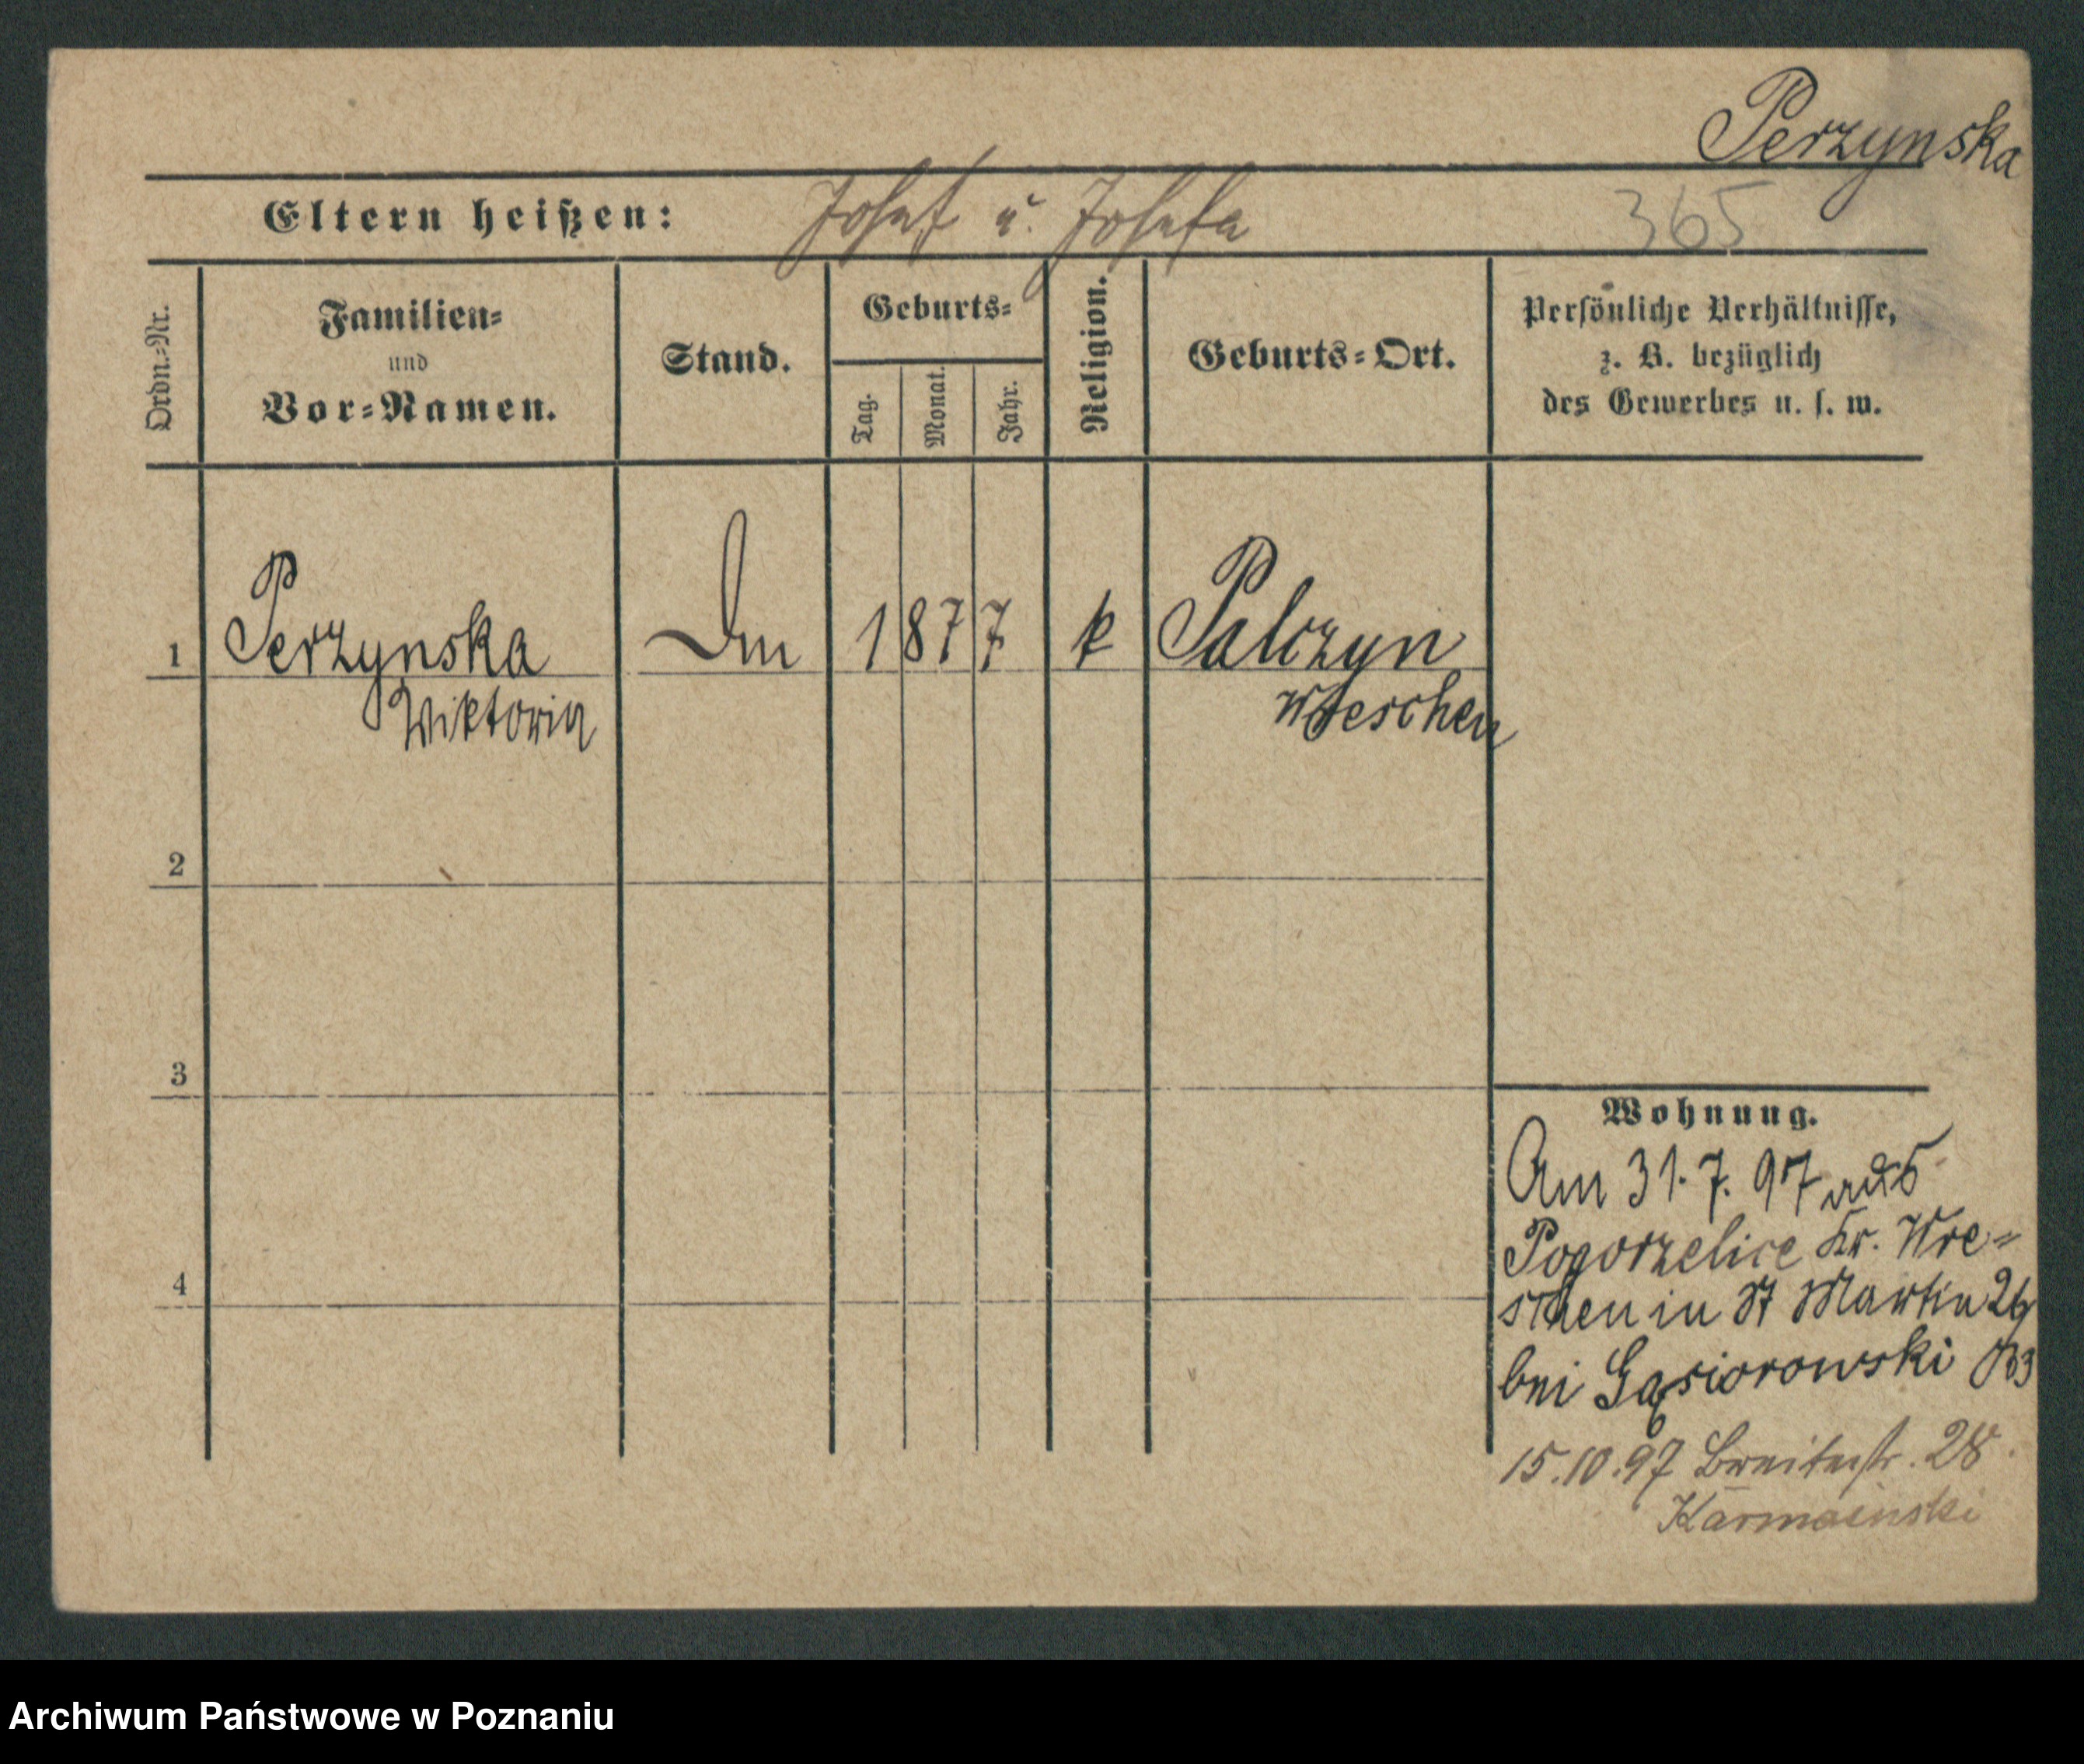 Perzynska
Eltern heißen: Josef u. Josefa 365
Ordn.-Nr.
Familien-
und
Vor-Namen.
Stand.
Geburts-
Tag.
Monat.
Jahr.
Religion.
Geburts-Ort.
Persönliche Verhältnisse,
z. B. bezüglich
des Gewerbes u. s. w.
1 Perzynska 1877 k Palczyn
Wiktoria Wreschen
2
3
4
Wohnung.
Am 31.7.97 aus
Pogorzelice Kr. Wre=
schen in St Martin
bei Gąsiorowski
15.10.97 Breitestr. 28.
Archiwum Państwowe w Poznaniu